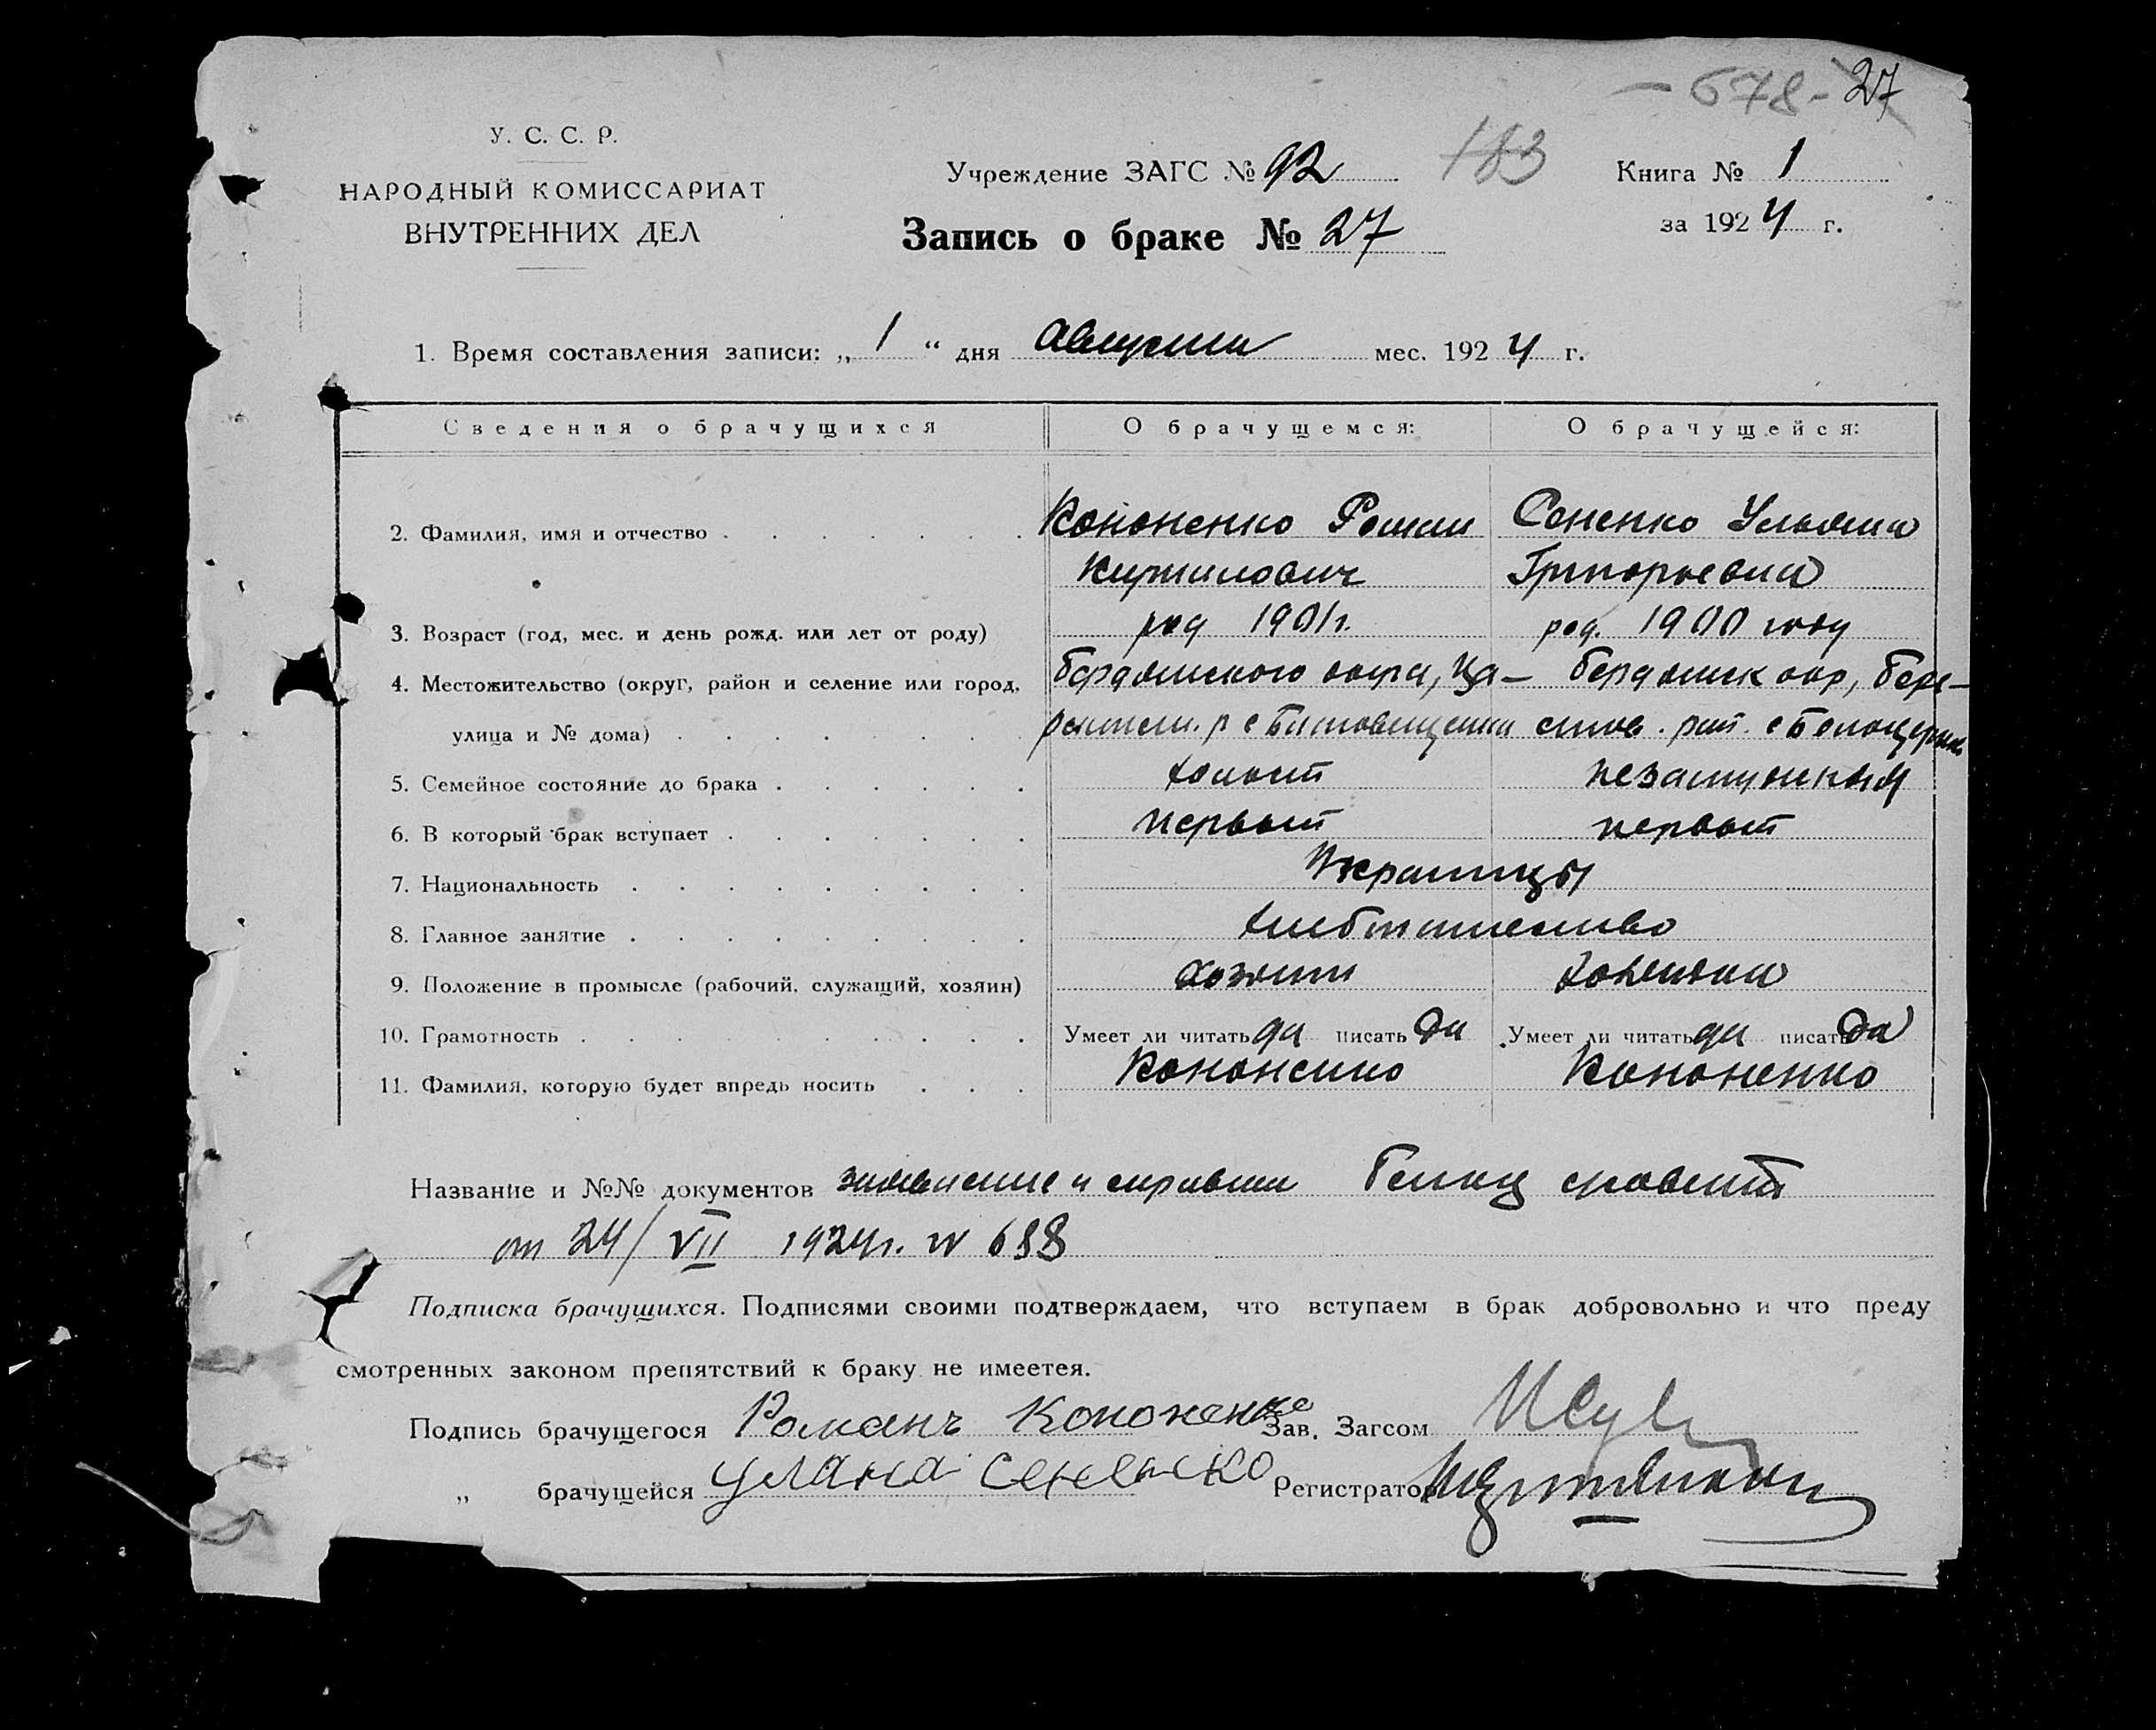 - 678 - 27
У. С. С. Р.
НАРОДНЫЙ КОМИССАРИАТ
ВНУТРЕННИХ ДЕЛ
Учреждение ЗАГС № 92
183
Книга № 1
Запись о браке № 27
за 1924 г.
1. Время составления записи: „ 1 “ дня августа мес. 1924 г.
Сведения о брачущихся О брачущемся: О брачущейся:
2. Фамилия, имя и отчество Кононенко Роман Сененко Ульяна
Григорьевна
3. Возраст (год, мес. и день рожд. или лет от роду) род 1901 г. род. 1900 году
4. Местожительство (округ, район и селение или город, Бердянского окра, Ца- Бердянск окр, Бере-
улица и № дома) р с Благовещенка стов. рай. с Белоцерков
5. Семейное состояние до брака холост незамужняя
6. В который брак вступает первый первый
7. Национальность Украинцы
8. Главное занятие хлебопашество
9. Положение в промысле (рабочий, служащий, хозяин) хозяин хозяйка
10. Грамотность Умеет ли читать да писать да Умеет ли читать да писать да
11. Фамилия, которую будет впредь носить Кононенко Кононенко
Название и №№ документов заявление и справки Белоц
от 24/VII 1924 г. № 688
Подписка брачущихся. Подписями своими подтверждаем, что вступаем в брак добровольно и что преду
смотренных законом препятствий к браку не имеетея.
Подпись брачущегося Романъ Кононенко Зав. Загсом
„ брачущейся Уляна Сененько Регистратор